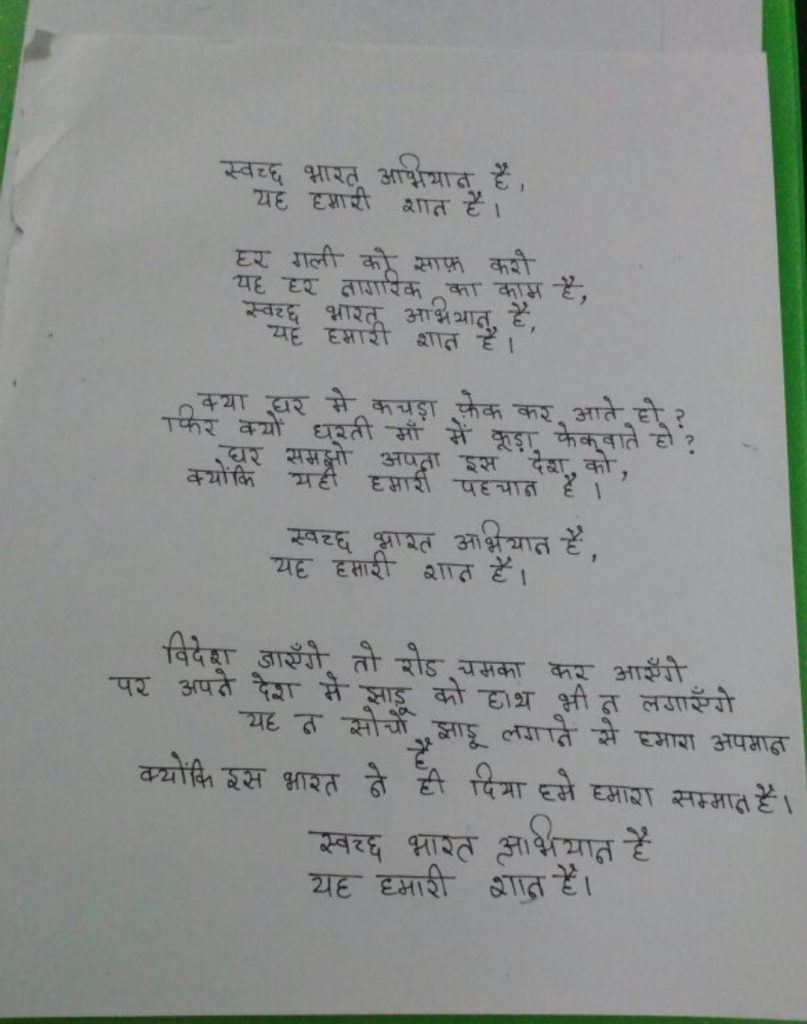 स्वच्छ भारत अभियान है,
यह हमारी शान है।
हर गली को साफ़ करो
यह हर नागरिक का काम है,
स्वच्छ भारत अभियान है,
यह हमारी शान है।
क्या घर मे कचड़ा फ़ेक कर आते हो?
फिर क्यों धरती माँ में कूड़ा फेकवाते हो?
घर समझो अपना इस देश को,
क्योंकि यही हमारी पहचान है।
स्वच्छ भारत अभियान है,
यह हमारी शान है।
विदेश जाएँगे तो रोड चमका कर आएँगे
पर अपने देश मे झाडू को हाथ भी न लगाएँगे
यह न सोचों झाडू लगाने से हमारा अपमान
है
क्योंकि इस भारत ने ही दिया हमे हमारा सम्मान है।
स्वच्छ भारत अभियान है
यह हमारी शान है।